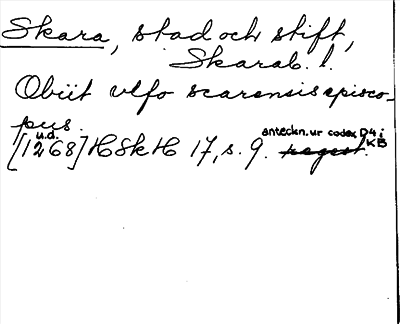 Skara, stad och stift,
Skarab. l.
Obiit vlfo scarensis episco-
pus.
u.d. anteckn. ur codex D4 i
[1268] HSkH 17, s. 9. regest. KB